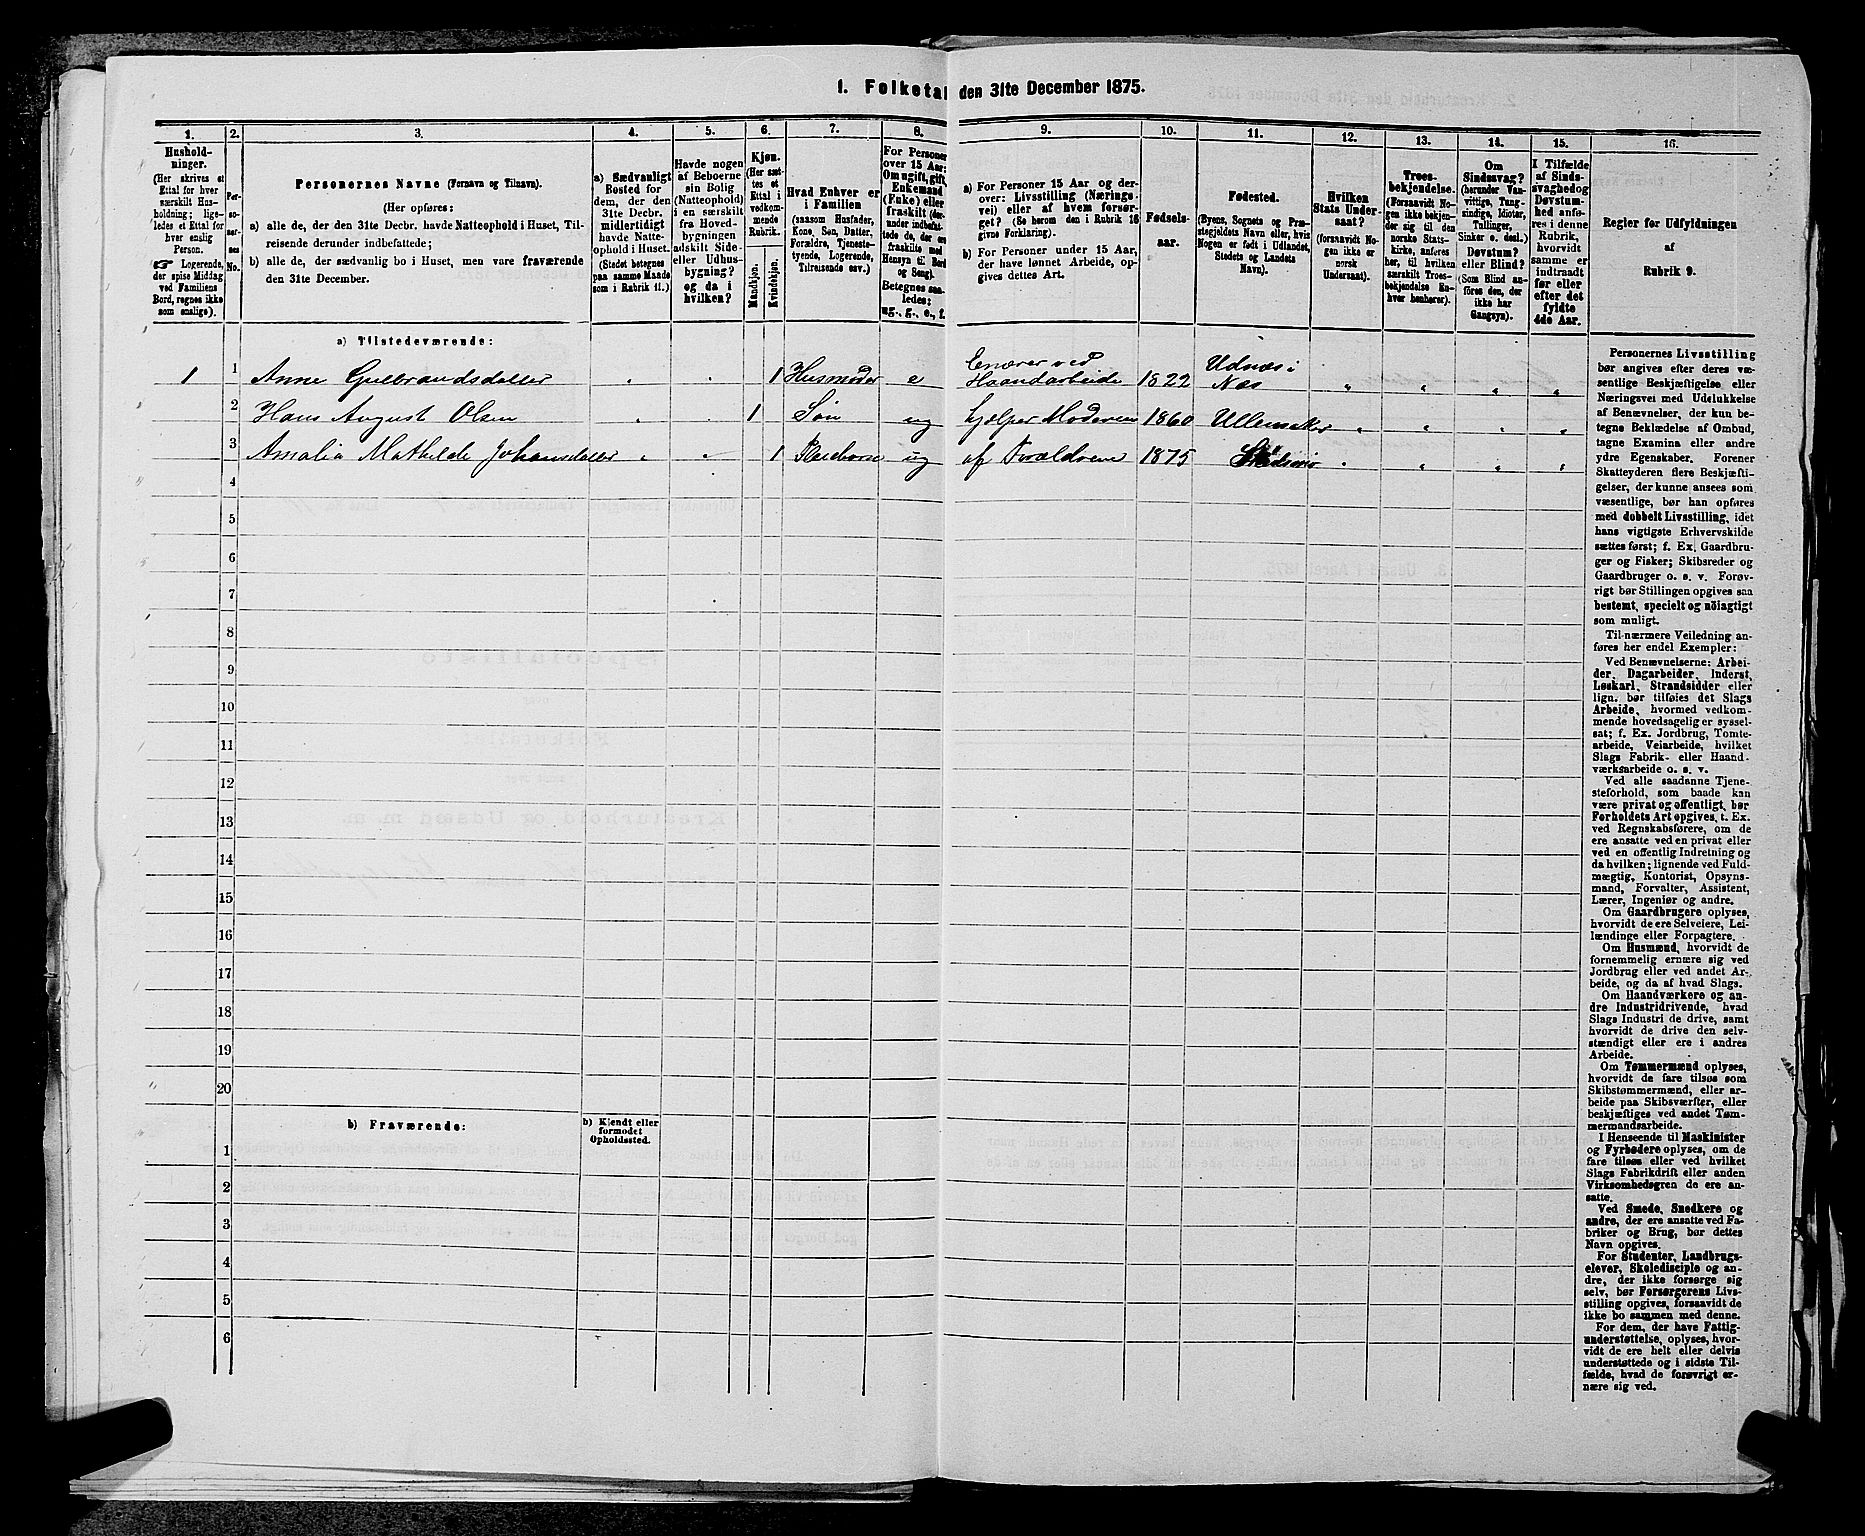 1. Folketal den 31te December 1875.
1. 2. 3. 4. 5. 6. 7. 8. 9. 10. 11. 12. 13. 14. 15. 16.
Hushold-
ninger.
(Her skrives et
Ettal for hver
særskilt Hus-
holdning; lige-
ledes et Ettal for
hver enslig
Person.
☞ Logerende,
der spise Middag
ved Familiens
Bord, regnes ikke
som enslige).
Per-
so-
ner-
nes
No.
Personernes Navne (Fornavn og Tilnavn).
(Her opføres:
a) alle de, der den 31te Decbr. havde Natteophold i Huset, Til-
reisende derunder indbefattede;
b) alle de, der sædvanlig bo i Huset, men vare fraværende
den 31te December.
a) Sædvanligt
Bosted for
dem, der den
31te Decbr.
midlertidigt
havde Natte-
ophold i Huset.
(Stedet betegnes
paa samme Maade
som i Rubrik 11.)
Havde nogen
af Beboerne
sin Bolig
(Natteophold)
i en særskilt
fra Hoved-
bygningen
adskilt Side-
eller Udhus-
bygning?
og da i
hvilken?
Kjøn.
(Her sæt-
tes et
Ettal i
vedkom-
mende
Rubrik.)
Mandkjøn.
Kvindekjøn.
Hvad Enhver er
i Familien
(saasom Husfader,
Kone, Søn, Datter,
Forældre, Tjeneste-
tyende, Logerende,
Tilreisende osv.)
For Personer
over 15 Aar:
Om ugift, gift,
Enkemand
(Enke) eller
fraskilt (der-
under indbefat-
tede de, der ere
fraskilte med
Hensyn til Bord
og Seng).
Betegnes saa-
ledes:
ug., g., e., f.
a) For Personer 15 Aar og der-
over: Livsstilling (Nærings-
vei) eller af hvem forsør-
get? (Se herom den i Rubrik 16
givne Forklaring).
b) For Personer under 15 Aar,
der have lønnet Arbeide, op-
gives dettes Art.
Fødsels-
aar.
Fødested.
(Byens, Sognets og Præ-
stegjeldets Navn eller, hvis
Nogen er født i Udlandet,
Stedets og Landets
Navn).
Hvilken
Stats Under-
saat?
(forsaavidt No-
gen ikke er
norsk
Undersaat).
Troes-
bekjendelse.
(Forsaavidt No-
gen ikke bekjen-
der sig til den
norske Stats-
kirke, anføres
her, til hvilken
særskilt Troes-
bekjendelse En-
hver henhører).
Om
Sindssvag?
(herunder Van-
vittige, Tung-
sindige, Idioter,
Tullinger,
Sinker o. desl.)
Døvstum?
eller Blind?
(Som Blind an-
føres den, der
ikke har
Gangsyn).
I Tilfælde
af Sinds-
svaghed og
Døvstum-
hed anfø-
res i denne
Rubrik,
hvorvidt
samme er
indtraadt
før eller
efter det
fyldte
4de Aar.
Regler for Udfyldningen
af
Rubrik 9.
a) Tilstedeværende:
1 1 Anne Gulbrandsdatter " " 1 Husmoder e Ernærer ved
Haandarbeide 1822 Udnæs i
Næs " " " "
2 Hans August Olsen " " 1 Søn ug hjælper Moderen 1860 Ullensaker " " " "
3 Amalia Mathilde Johansdatter " " 1 Pleiebarn ug af Forældrene 1875 Skedsmo " " " "
4
5
6
7
8
9
10
11
12
13
14
15
16
17
18
19
20
b) Fraværende:
b) Kjendt eller
formodet
Opholdssted.
1
2
3
4
5
6
Personernes Livsstilling
bør angives efter deres væ-
sentlige Beskjæftigelse eller
Næringsvei med Udelukkelse
af Benævnelser, der kun be-
tegne Beklædelse af Ombud,
tagne Examina eller andre
ydre Egenskaber. Forener
Skatteyderen flere Beskjæfti-
gelser, der kunne ansees som
væsentlige, bør han opføres
med dobbelt Livsstilling, idet
hans vigtigste Erhvervskilde
sættes først; f. Ex. Gaardbru-
ger og Fisker; Skibsreder og
Gaardbruger o. s. v. Forøv-
rigt bør Stillingen opgives saa
bestemt, specielt og nöiagtigt
som muligt.
Til nærmere Veiledning an-
føres her endel Exempler:
Ved Benævnelserne: Arbei-
der, Dagarbeider, Inderst,
Løskarl, Strandsidder eller
lign. bør tilføies det Slags
Arbeide, hvormed vedkom-
mende hovedsagelig er syssel-
sat; f. Ex. Jordbrug, Tomte-
arbeide, Veiarbeide, hvilket
Slags Fabrik- eller Haand-
værksarbeide o. s. v.
Ved alle saadanne Tjene-
steforhold, som baade kan
være privat og offentligt, bør
Forholdets Art opgives, t. Ex.
ved Regnskabsførere, om de
ere ansatte ved en privat eller
ved en offentlig Indretning og
da hvilken; lignende ved Fuld-
mægtig, Kontorist, Opsyns-
mand, Forvalter, Assistent,
Lærer, Ingeniør og andre.
Om Gaardbrugere oplyses,
hvorvidt de ere Selveiere, Lei-
lændinge eller Forpagtere.
Om Husmænd, hvorvidt de
fornemmelig ernære sig ved
Jordbrug eller ved andet Ar-
beide, og da af hvad Slags.
Om Haandværkere og an-
dre Industridrivende, hvad
Slags Industri de drive, samt
hvorvidt de drive den selv-
stændigt eller ere i andres
Arbeide.
Om Tømmermænd oplyses,
hvorvidt de fare tilsøs som
Skibstømmermænd, eller ar-
beide paa Skibsværfter, eller
beskjæftiges ved andet Tøm-
mermandsarbeide.
I Henseende til Maskinister
og Fyrbødere oplyses, om de
fare tilsøs eller ved hvilket
Slags Fabrikdrift eller anden
Virksomhedsgren de ere an-
satte.
Ved Smede, Snedkere og
andre, der ere ansatte ved Fa-
briker og Brug, bør dettes
Navn opgives.
For Studenter, Landbrugs-
elever, Skoledisciple og an-
dre, der ikke forsørge sig
selv, bør Forsørgerens Livs-
stilling opgives, forsaavidt de
ikke bo sammen med denne.
For dem, der have Fattig-
understøttelse, oplyses, hvor-
vidt de ere helt eller delvis
understøttede og i sidste Til-
fælde, hvad de forøvrigt er-
nære sig ved.